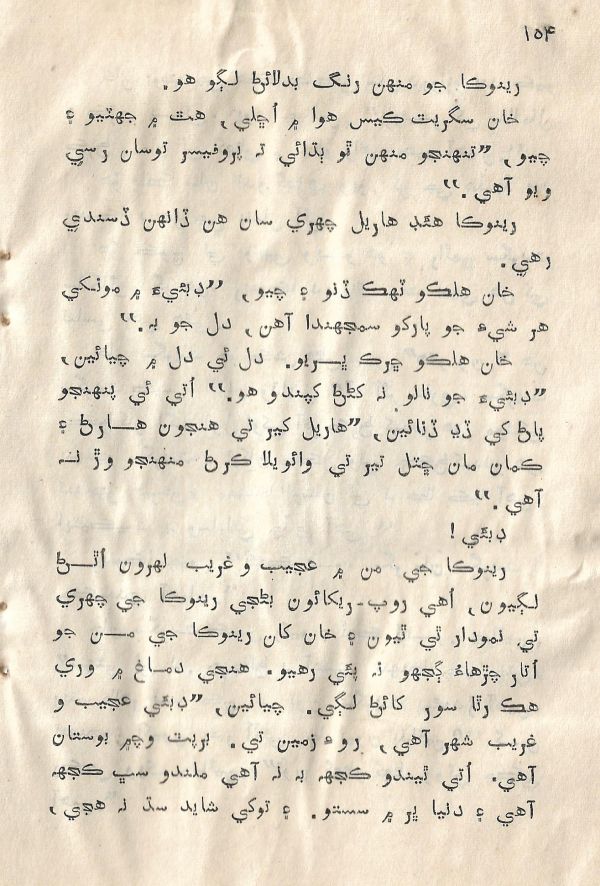 ۱۵۴
رينوڪا جو منهن رنگ بدلائڻ لڳو هو.
خان سگريٽ ڪيس هوا ۾ اُڇلي، هٿ ۾ جهٽيو ۽
چيو، ”تنهنجو منهن ٿو ٻڌائي ته پروفيسر توسان رسي
ويو آهي.“
رينوڪا هٿڍ هاريل چهري سان هن ڏانهن ڏسندي
رهي.
خان هلڪو ٽهڪ ڏنو ۽ چيو، ”دٻئيءَ ۾ مونکي
هر شيءِ جو پارکو سمجهندا آهن، دل جو به.“
خان هلڪو ڇرڪ ڀريو. دل ئي دل ۾ چيائين،
”دٻئيءَ جو نالو نه کڻڻ کپندو هو.“ اُتي ئي پنهنجو
پاڻ کي ڏڍ ڏنائين، ”هاريل کير تي هنجون هارڻ ۽
ڪمان مان ڇٽل تير تي واويلا ڪرڻ منهنجو وڙ نه
آهي.“
دٻئي!
رينوڪا جي من ۾ عجيب و غريب لهرون اُٿڻ
لڳيون، اُهي روپ-ريکائون بڻجي رينوڪا جي چهري
تي نمودار ٿي ٿيون ۽ خان کان رينوڪا جي من جو
اُتار چڙهاءُ ڳجهو نه پئي رهيو. هنجي دماغ ۾ وري
هڪ رٿا سور کائڻ لڳي. چيائين، ”دٻئي عجيب و
غريب شهر آهي، روءِ زمين تي. بريٽ وچ۾ بوستان
آهي. اُتي ٿيندو ڪجهه به نه آهي ملندو سڀ ڪجهه
آهي ۽ دنيا ڀر ۾ سستو. ۽ توکي شايد سڌ نه هجي،